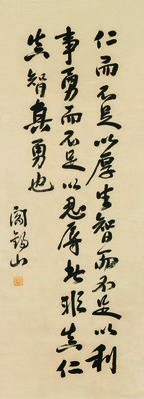 仁而不足以厚生智而不足以利
事勇而不足以忍辱皆非真仁
真智真勇也
閻錫山